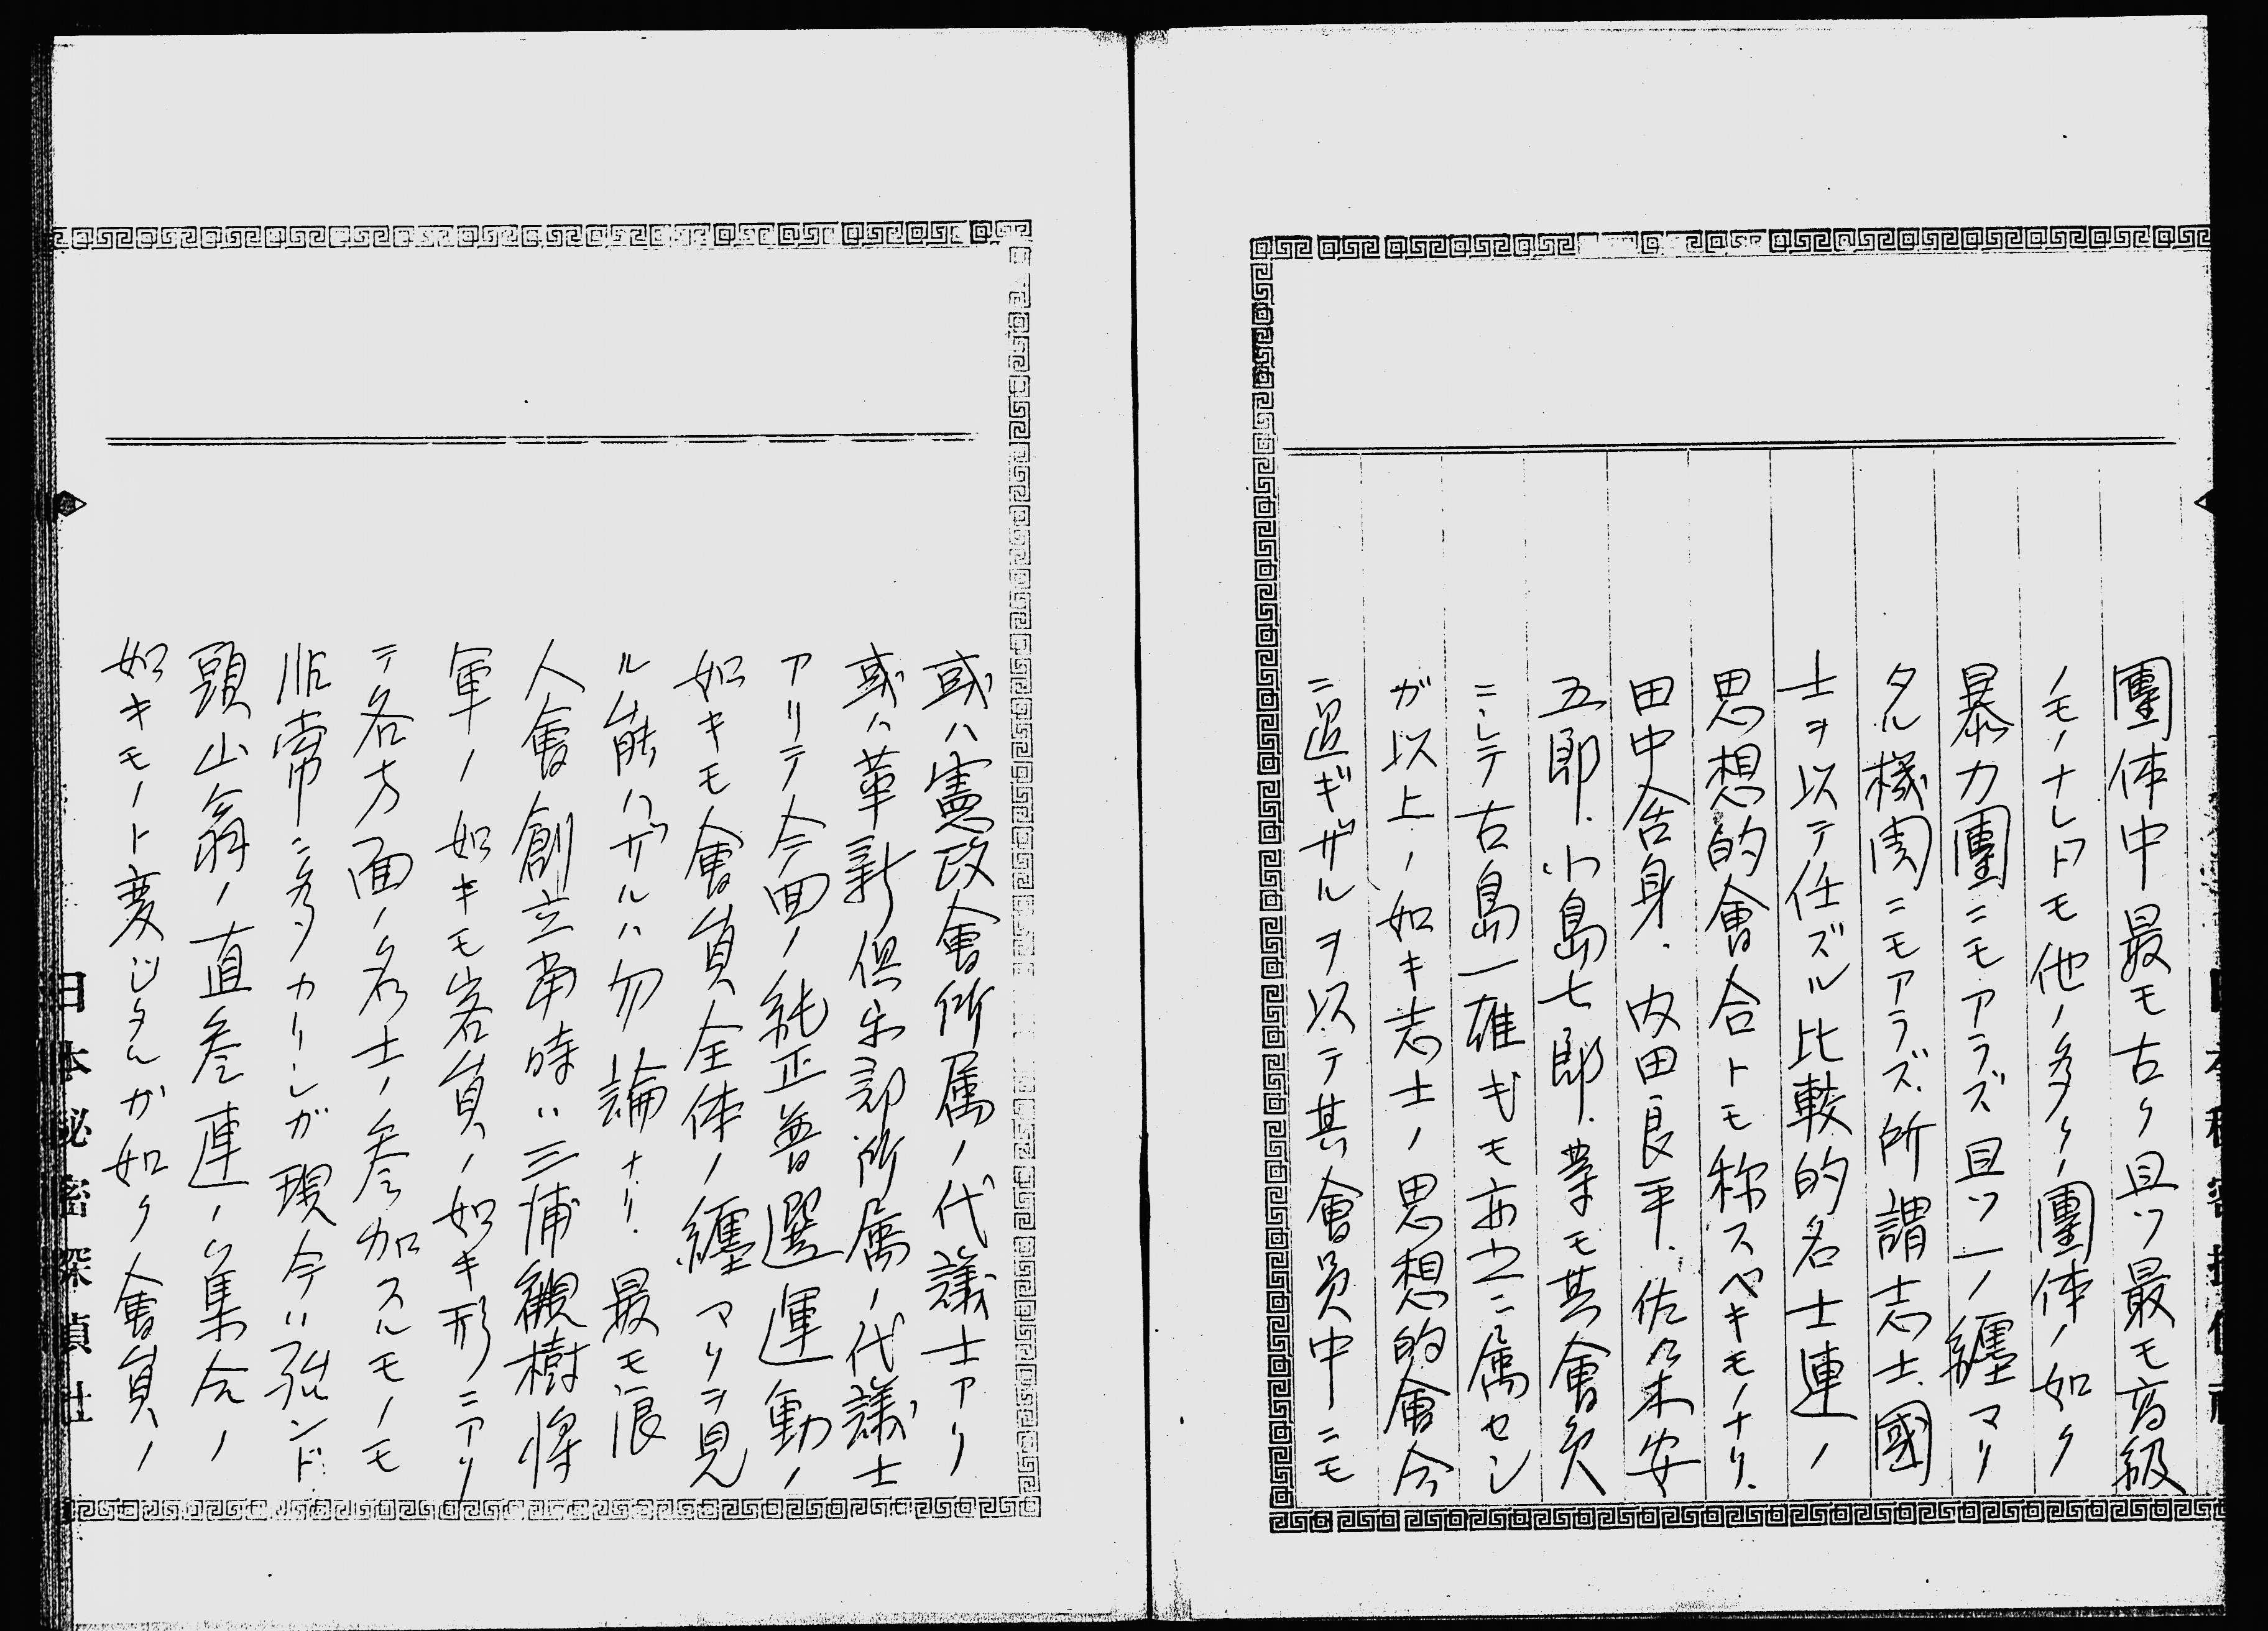 團体中最モ古ク且ツ最モ高級
ノモノナレドモ他ノ多クノ團体ノ如ク
暴力團ニモアラズ且ツ一ノ纏マリ
タル機関ニモアラズ所謂志士國
士ヲ以テ任ズル比較的名士連ノ
思想的會合トモ称スベキモノナリ.
田中舎身.内田良平.佐々木安
五郎.小島七郎.業モ其會員
ニシテ古島一雄モ亦之ニ属セシ
ガ以上ノ如キ志士ノ思想的會合
ニ過ギザルヲ以テ其會員中ニモ
或ハ憲政會所属ノ代議士アリ
或ハ革新倶楽部所属ノ代議士
アリテ今回ノ純正普選運動ノ
如キモ會員全体ノ纏マリヲ見
ル能ハザルハ勿論ナリ.最モ浪
人會創立当時ハ三浦観樹将
軍ノ如キモ客員ノ如キ形ニアリ
テ各方面ノ名士ノ参加スルモノモ
非常ニ多カリシガ現今ハ殆ンド
頭山翁ノ直参連ノミ集合ノ
如キモノト変ジタルガ如ク會員ノ
日本秘密探偵社